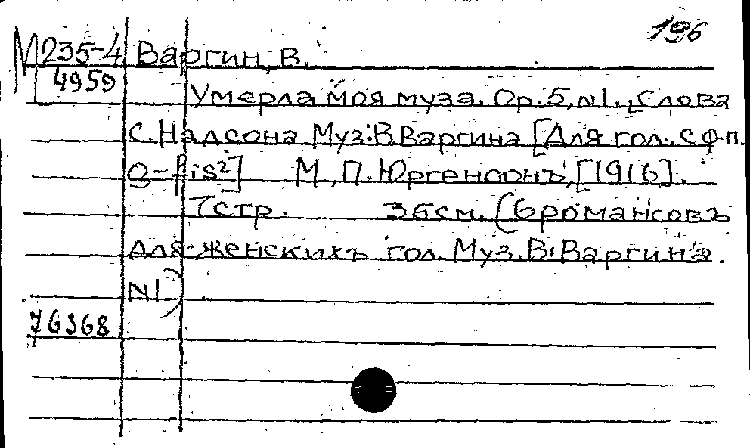 196
М 235-4 Варгин, В.
4959
Умерла моя муза. Op. 5, N1. Слова
С. Надсона Муз. В. Варгина [Для гол. с ф-п.
g-fis²] М., П. Юргенсонъ, [1916].
7 стр. 36 см. (6 романсовъ
для женскихъ гол. Муз. В. Варгина.
N1)
76368